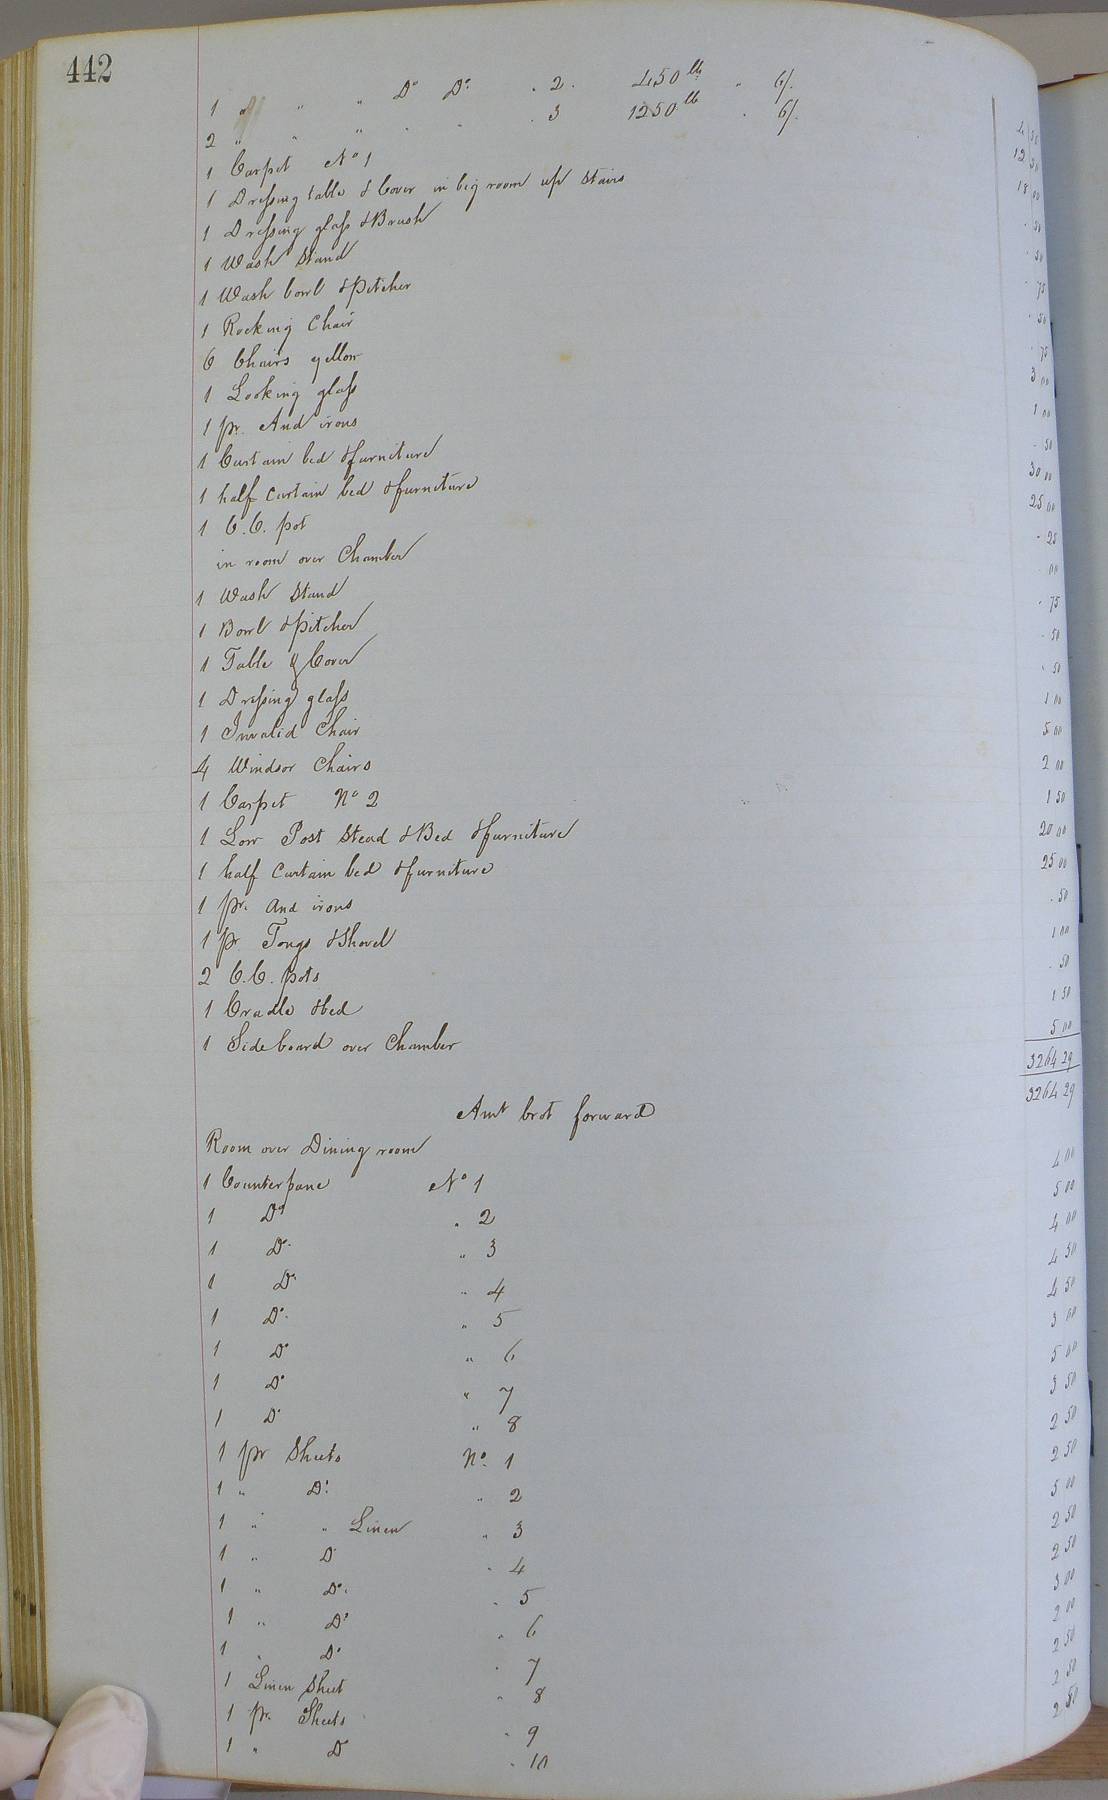 442
1 " " " Do Do . 2 . 450 lb " 6/. 4 50
2 " " " . . . 3 1250 lb . 6/. 12 50
1 Carpet No 1 18 00
1 Dressing table & Cover in big room up stairs . 50
1 Dressing glass & Brush . 50
1 Wash Stand . 75
1 Wash bowl & Pitcher . 50
1 Rocking Chair . 75
6 Chairs yellow 3 00
1 Looking glass 1 00
1 pr. And irons . 50
1 Curtain bed & furniture 30 00
1 half curtain bed & furniture 25 00
1 C.C. pot . 25
in room over Chamber . 00
1 Wash Stand . 75
1 Bowl & Pitcher . 50
1 Table & Cover . 50
1 Dressing glass 1 00
1 Invalid Chair 5 00
4 Windsor Chairs 2 00
1 Carpet No 2 1 50
1 Low Post Stead & Bed & furniture 20 00
1 half Curtain bed & furniture 25 00
1 pr. And irons . 50
1 pr. Tongs & Shovel 1 00
2 C.C. pots . 50
1 Cradle & bed 1 50
1 Side board over Chamber 5 00
3264 29
Amt brot forward 3264 29
Room over Dining room
1 Counterpane No 1 4 00
1 Do " 2 5 00
1 Do " 3 4 00
1 Do " 4 4 50
1 Do " 5 4 50
1 Do " 6 3 00
1 Do " 7 5 00
1 Do " 8 3 50
1 pr Sheets No. 1 2 50
1 " Do " 2 2 50
1 " " Linen " 3 5 00
1 " Do " 4 2 50
1 " Do " 5 2 50
1 " Do " 6 3 00
1 " Do " 7 2 00
1 Linen Sheet " 8 2 50
1 pr. Sheets " 9 2 50
1 " Do " 10 2 50